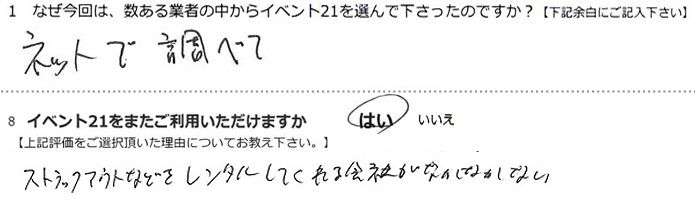 1 なぜ今回は、数ある業者の中からイベント21を選んで下さったのですか？【下記余白にご記入下さい】
ネットで調べて
8 イベント21をまたご利用いただけますか はい いいえ
【上記評価をご選択頂いた理由についてお教え下さい。】
ストラックアウトなどをレンタルしてくれる会社がなかなかしない